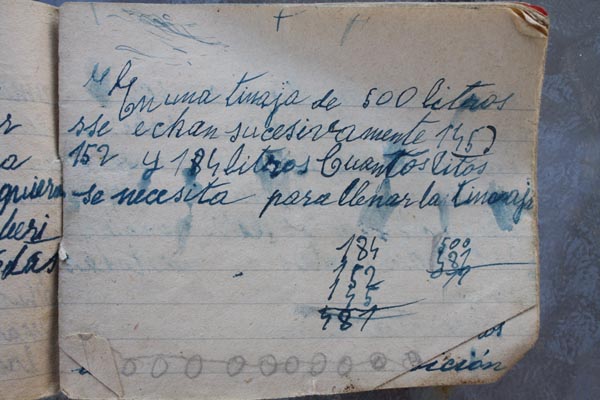 En una tinaja de 500 litros
sse echan sucesivamente 145
152 y 184 litros Cuantos litos
se necesita para llenar la tinonaja
184 500
152 481
145 19
481
quiera
beri
das
ición